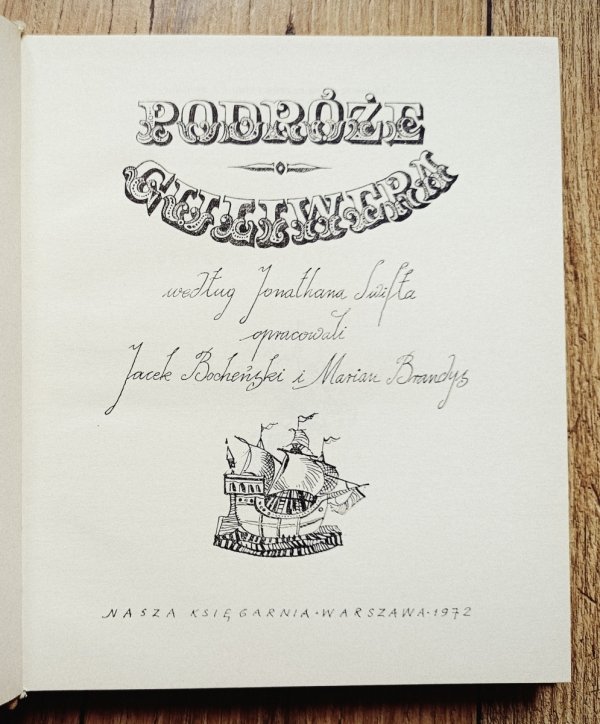 PODRÓŻE
GULIWERA
według Jonathana Swifta
opracowali
Jacek Bocheński i Marian Brandys
NASZA KSIĘGARNIA · WARSZAWA · 1972